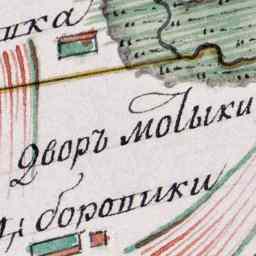 шка
дворъ мотыки
боропики